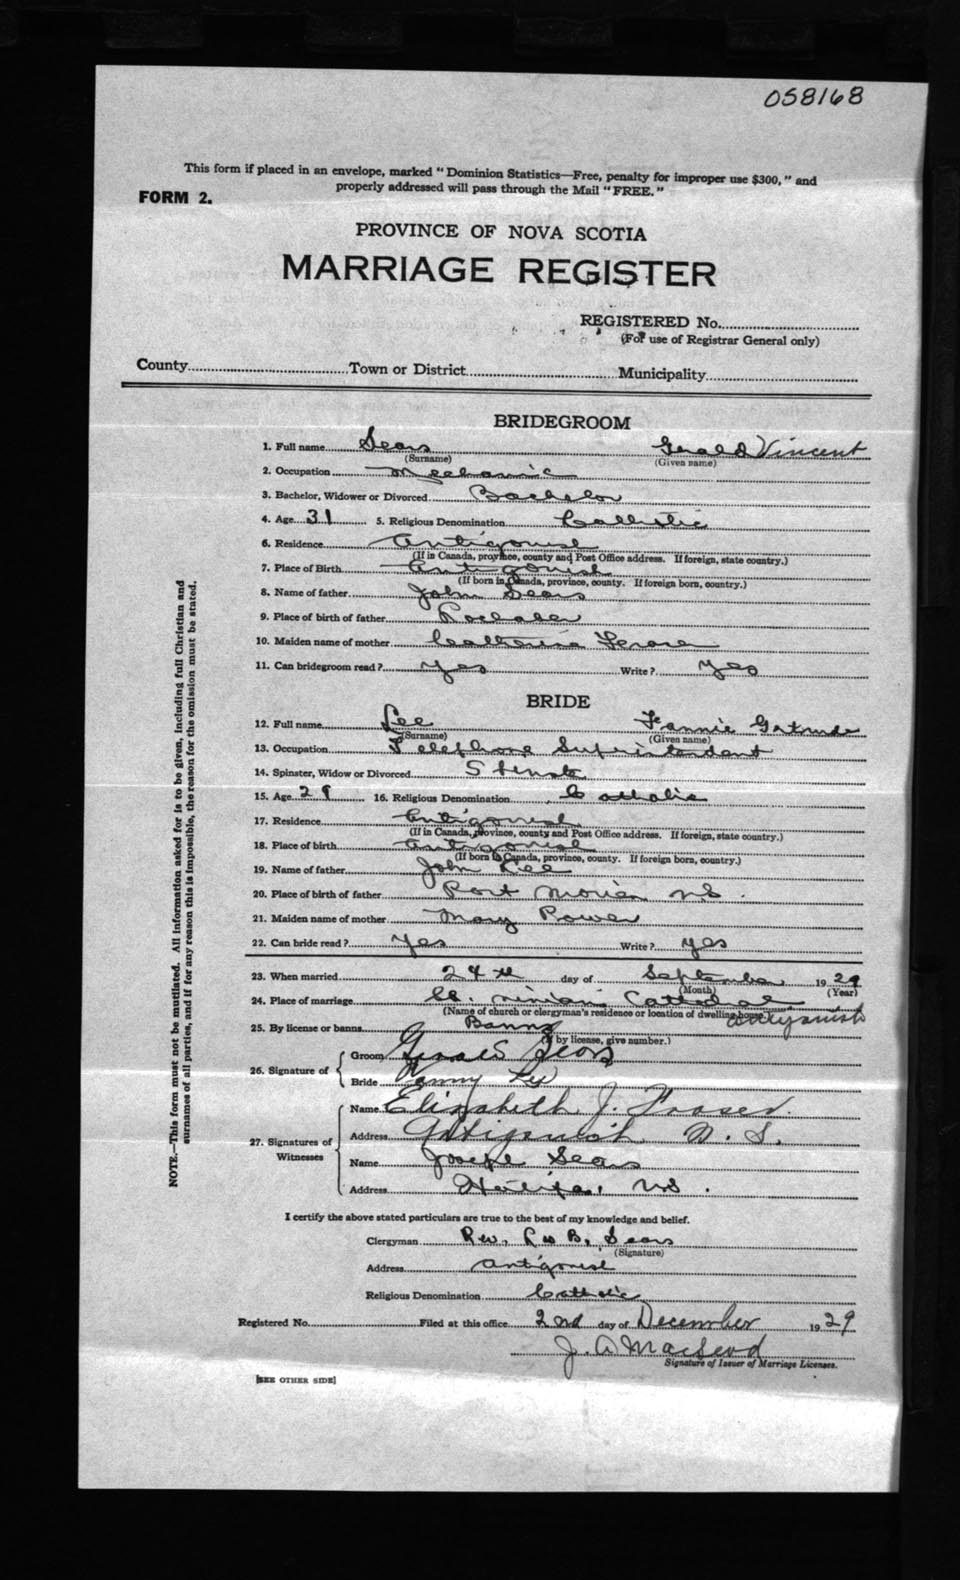 058168
This form if placed in an envelope, marked "Dominion Statistics—Free, penalty for improper use $300," and
properly addressed will pass through the Mail "FREE."
FORM 2.
PROVINCE OF NOVA SCOTIA
MARRIAGE REGISTER
REGISTERED No.
(For use of Registrar General only)
County Town or District Municipality
BRIDEGROOM
1. Full name Sears Gerald Vincent
(Surname) (Given name)
2. Occupation Mechanic
3. Bachelor, Widower or Divorced Bachelor
4. Age 31 5. Religious Denomination Catholic
6. Residence Antigonish
(If in Canada, province, county and Post Office address. If foreign, state country.)
7. Place of Birth Antigonish
(If born in Canada, province, county. If foreign born, country.)
8. Name of father John Sears
9. Place of birth of father Lochaber
10. Maiden name of mother Catherine
11. Can bridegroom read? Yes Write? Yes
BRIDE
12. Full name Lee Fannie Gertrude
(Surname) (Given name)
13. Occupation Telephone Superintendent
14. Spinster, Widow or Divorced
15. Age 29 16. Religious Denomination Catholic
17. Residence Antigonish
(If in Canada, province, county and Post Office address. If foreign, state country.)
18. Place of birth Antigonish
(If born in Canada, province, county. If foreign born, country.)
19. Name of father John Lee
20. Place of birth of father Port Morien NS.
21. Maiden name of mother Mary Power
22. Can bride read? Yes Write? yes
23. When married 24th day of September 1929
(Month) (Year)
24. Place of marriage St. Ninian's Cathedral
(Name of church or clergyman's residence or location of dwelling house.) Antigonish
25. By license or banns Banns
(If by license, give number.)
26. Signature of
Groom Gerald Sears
Bride Fanny Lee
27. Signatures of Witnesses
Name Elizabeth J. Fraser.
Address Antigonish N. S.
Name Joseph Sears
Address Halifax, NS.
I certify the above stated particulars are true to the best of my knowledge and belief.
Clergyman Rev. Leo B. Sears
(Signature)
Address Antigonish
Religious Denomination Catholic
Registered No. Filed at this office 2nd day of December 1929
J. A. MacLeod
Signature of Issuer of Marriage Licenses.
[SEE OTHER SIDE]
NOTE.—This form must not be mutilated. All information asked for is to be given, including full Christian and
surnames of all parties, and if for any reason this is impossible, the reason for the omission must be stated.